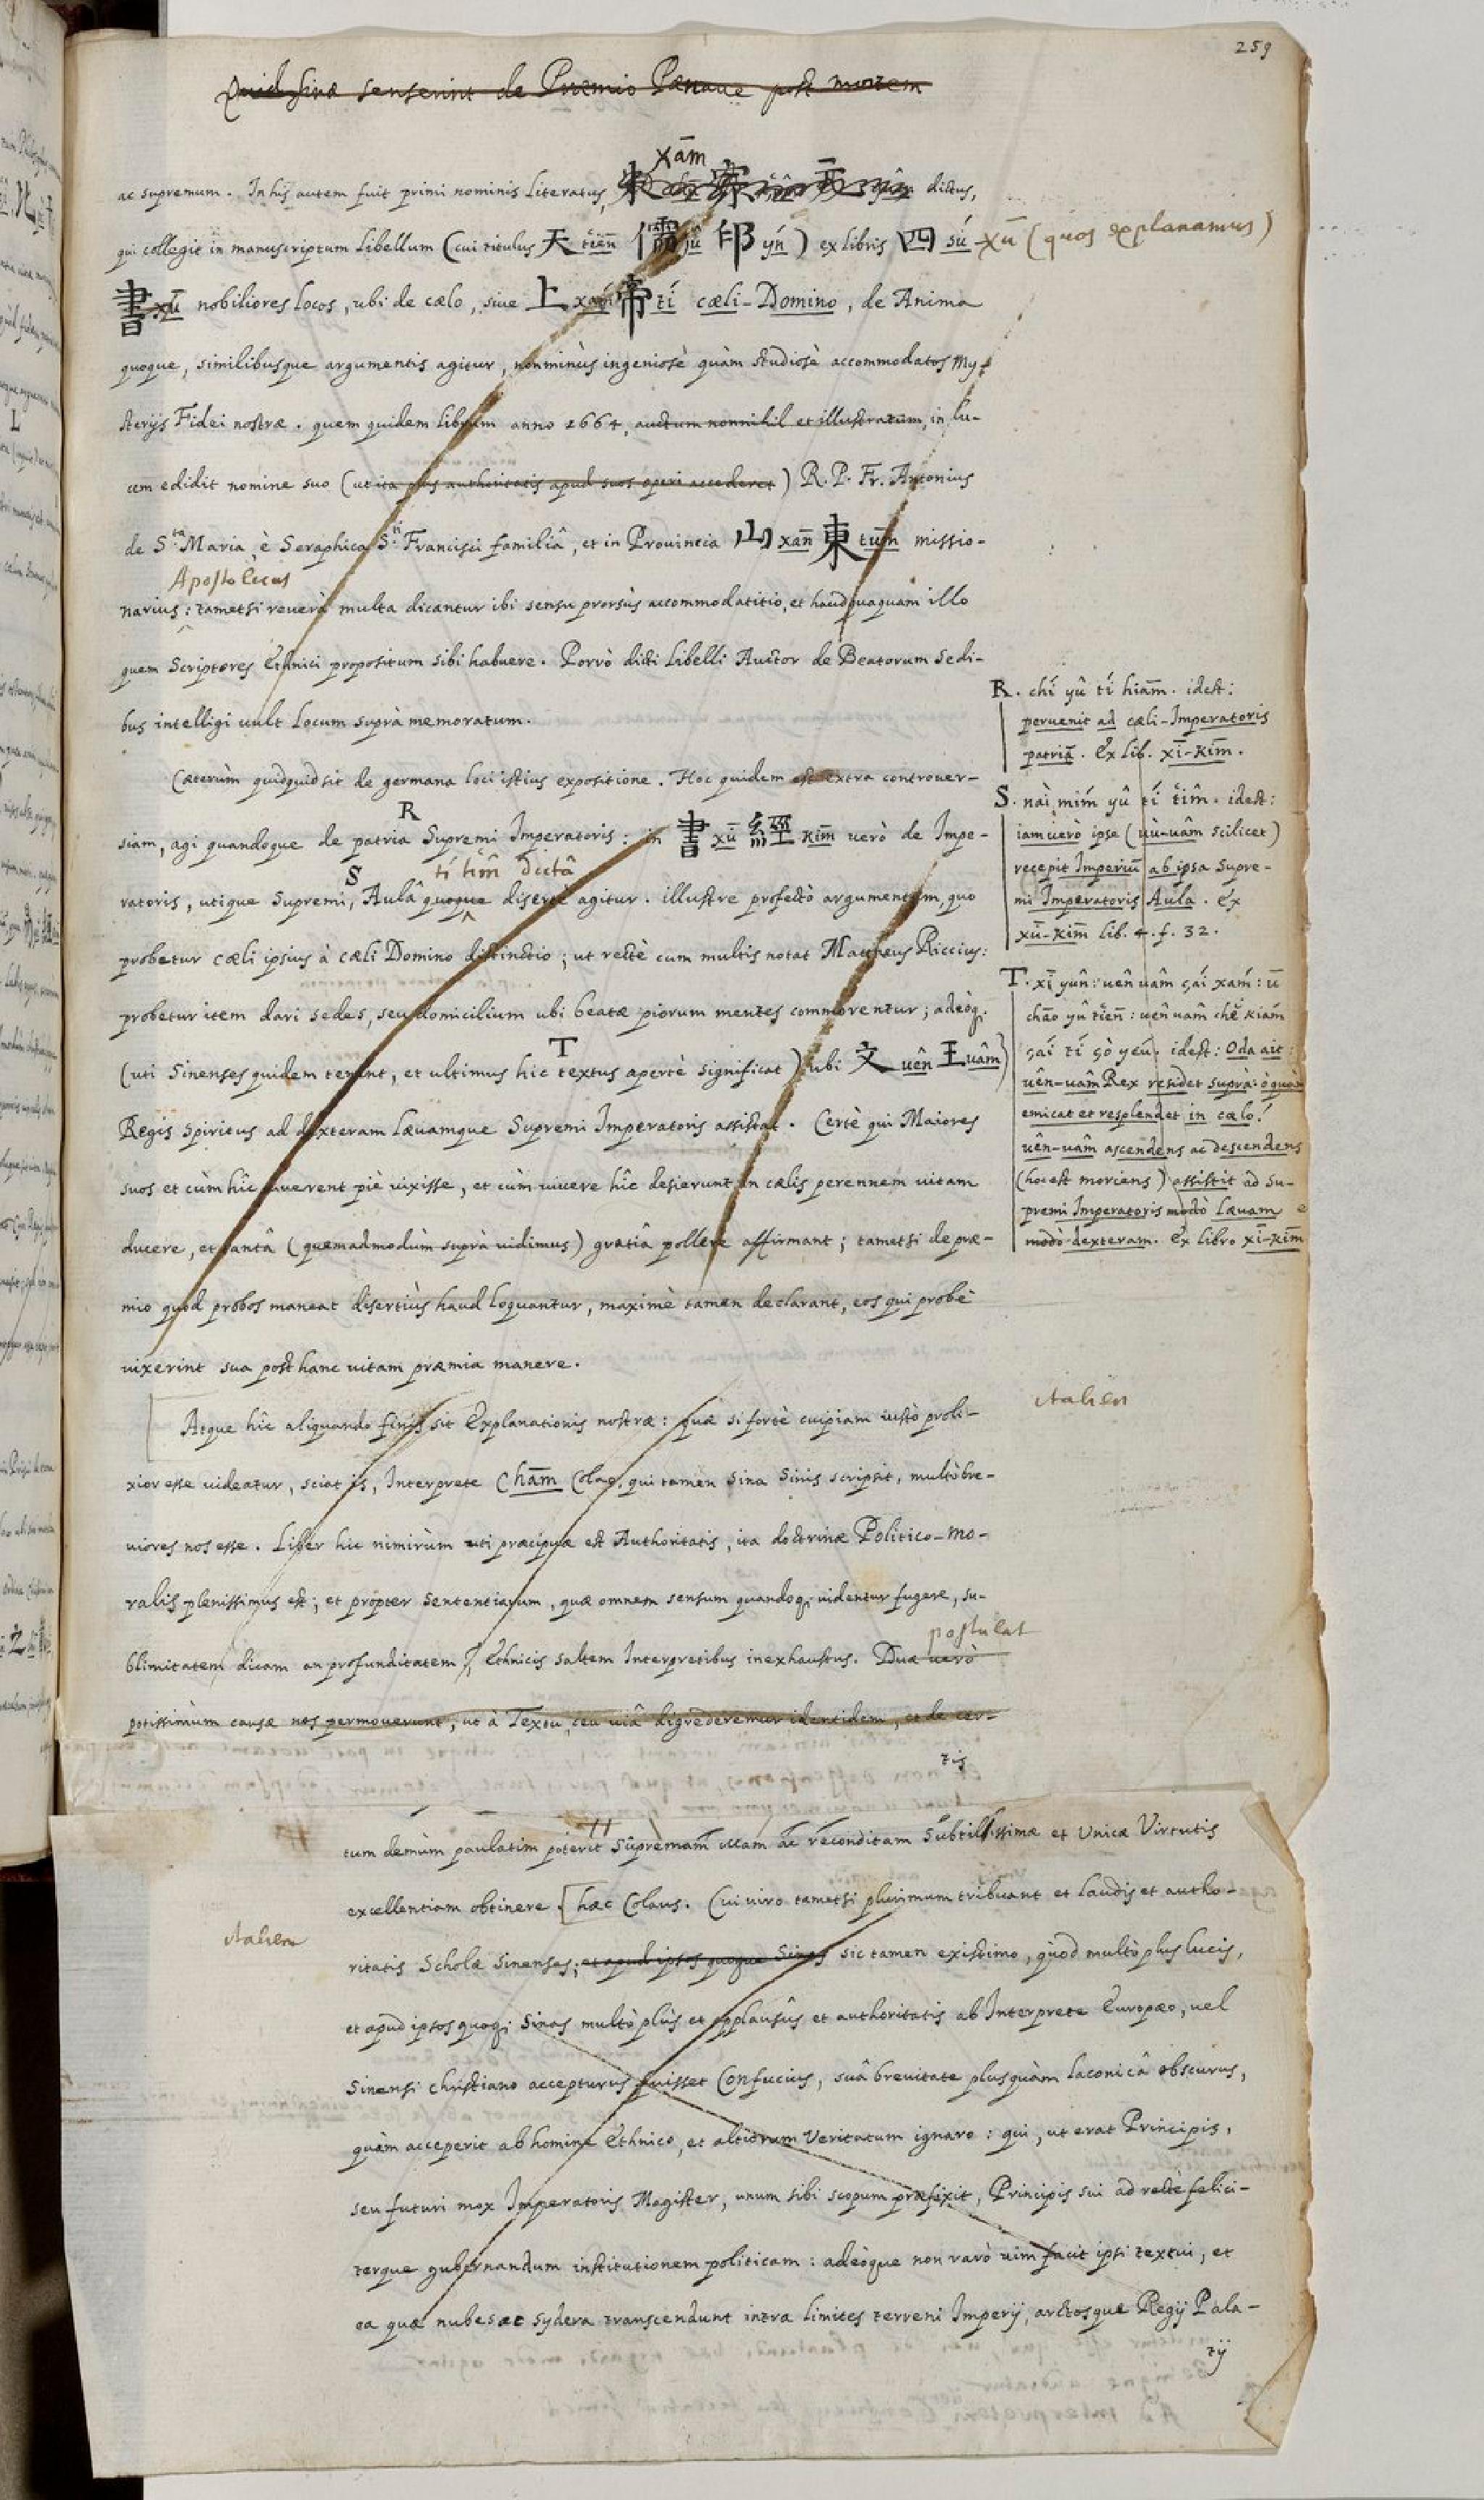 259
Quid Sinæ senserint de Præmio Pænave post mortem
xām
ac supremum. In his autem fuit primi nominis Literatus, dictus,
qui collegit in manuscriptum Libellum (cui titulus 天 tien̄ 儒 jû 印 yń) ex libris 四 sú - xū (quos explanamus)
書 xū nobiliores locos, ubi de cælo, sive 上 xám 帝 tí cæli-Domino, de Anima
quoque, similibusque argumentis agitur, non minùs ingeniosè quàm studiosè accommodatos My-
sterijs Fidei nostræ. quem quidem librum anno 1664, auctum nonnihil et illustratum, in lu-
cem edidit nomine suo (ut ita plus authoritatis apud suos operi accederet) R. P. Fr. Antonius
de S.ta Maria è Seraphica S.ti Francisci familiâ, et in Provincia 山 xan̄ 東 tum̄ missio-
Apostolicus
narius: tametsi reverà multa dicantur ibi sensu prorsùs accommodatitio, et haudquaquam illo
quem Scriptores Ethnici propositum sibi habuere. Porrò dicti Libelli Auctor de Beatorum Sedi-
bus intelligi vult Locum suprà memoratum.
Cæterùm quidquid sit de germana loci istius expositione. Hoc quidem est extra controver-
R
siam, agi quandoque de patria Supremi Imperatoris: in 書 xū 經 kim̄ verò de Impe-
S tí tîm dictâ
ratoris, utique Supremi, Aulâ quoque disertè agitur. illustre profectò argumentum, quo
probetur cæli ipsius à cæli Domino distinctio; ut rectè cum multis notat Matthæus Riccius:
probetur item dari sedes, seu domicilium ubi beatæ piorum mentes commorentur; adeòq;
T
(uti Sinenses quidem tenent, et ultimus hic textus apertè significat) ubi 文 uên 王 uâm)
Regis spiritus ad dexteram lævamque Supremi Imperatoris assistat. Certè qui Maiores
suos et cùm hîc viverent piè vixisse, et cùm vivere hîc desierunt in cælis perennem vitam
ducere, et tantâ (quemadmodùm suprà vidimus) gratiâ pollere affirmant; tametsi de præ-
mio quod probos maneat disertiùs haud loquantur, maximè tamen declarant, eos qui probè
vixerint sua post hanc vitam præmia manere.
R. chí yû tí hiam̄. idest:
pervenit ad cæli-Imperatoris
patriā. Ex lib. xī-kim̄.
S. nài mím yû tí tîm. idest:
iam verò ipse (vù-uâm scilicet)
recepit Imperiū ab ipsa Supre-
mi Imperatoris Aula. Ex
xū-kim̄ lib. 4. f. 32.
T. xī yuñ: uên uâm çái xám: ū
chāo yû tien̄: uên uâm chĕ kiám
çái tí çò yéu. idest: Oda ait:
uên-uâm Rex residet suprà: ò quàm
emicat et resplendet in cælo!
uên-uâm ascendens ac descendens
(hoc est moriens) assistit ad Su-
premi Imperatoris modò Lævam
modò dexteram. Ex libro xī-kim̄
Atque hîc aliquando finis sit Explanationis nostræ: quæ si fortè cuipiam iustò proli-
xior esse videatur, sciat is, Interprete Chām Colao, qui tamen Sina Sinis scripsit, multò bre-
viores nos esse. Liber hic nimirùm uti præcipuæ est Authoritatis, ita doctrinæ Politico-Mo-
ralis plenissimus est; et propter sententiarum, quæ omnem sensum quandoq; videntur fugere, su-
postulat
blimitatem dicam an profunditatem? Ethnicis saltem Interpretibus inexhaustus. Duæ verò
potissimùm causæ nos permoverunt, ut à Textu, ceu viâ digrederemur identidem, et de cer-
tis
tum demùm paulatim poterit supremam illam ac reconditam subtilissimæ et Unicæ Virtutis
excellentiam obtinere. [hæc Colaus. Cui viro tametsi plurimum tribuant et laudis et autho-
ritatis Scholæ Sinenses; et apud ipsos quoque Sinas sic tamen existimo, quòd multò plus lucis,
et apud ipsos quoq; Sinas multò plùs et applausûs et authoritatis ab Interprete Europæo, vel
Sinensi christiano accepturus fuisset Confucius, suâ brevitate plusquàm laconicâ obscurus,
quàm acceperit ab homine Ethnico, et altiorum Veritatum ignaro: qui, ut erat Principis,
seu futuri mox Imperatoris Magister, unum sibi scopum præfixit, Principis sui ad rectè felici-
terque gubernandum institutionem politicam: adeòque non rarò vim facit ipsi textui, et
ea quæ nubes ac sydera transcendunt intra limites terreni Imperij, arctosque Regij Pala-
tij